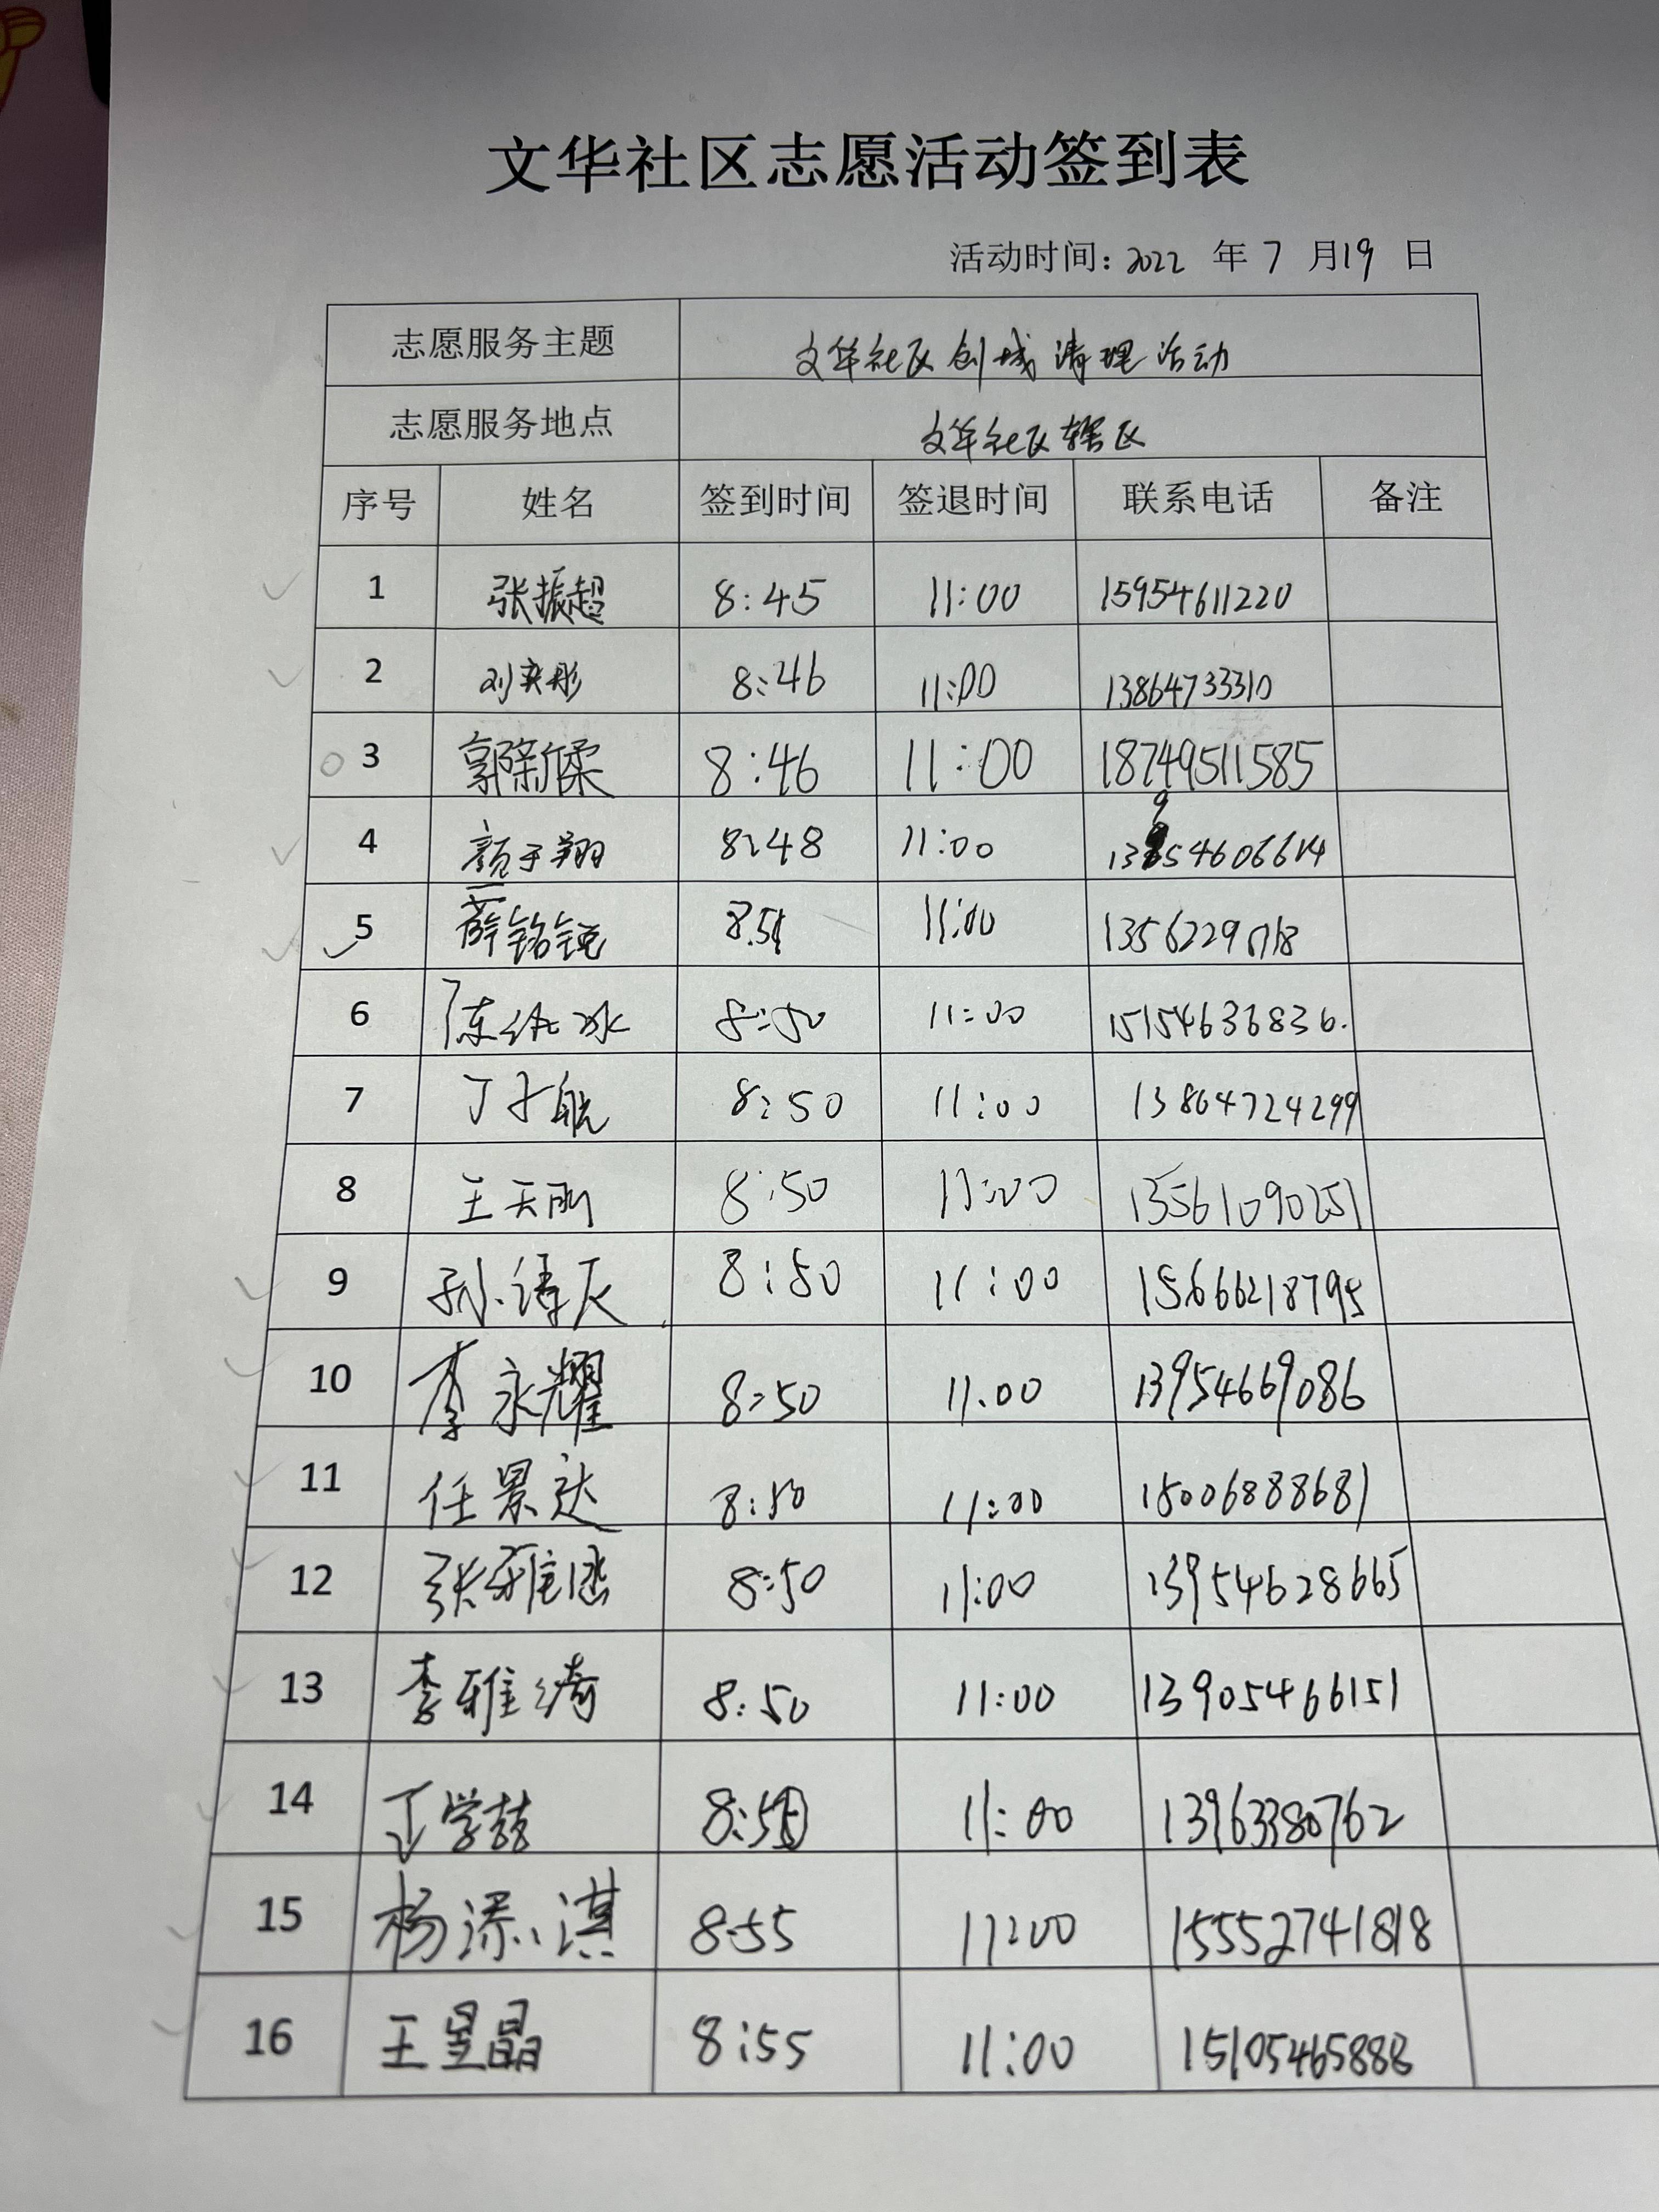 文华社区志愿活动签到表
活动时间: 2022 年 7 月 19 日
志愿服务主题 文华社区创城清理活动
志愿服务地点 文华社区辖区
序号 姓名 签到时间 签退时间 联系电话 备注
1 张振超 8:45 11:00 15954611220
2 刘奕彤 8:46 11:00 13864733310
3 郭新偞 8:46 11:00 18749511585
4 颜于翔 8:48 11:00 13954606614
5 薛铭锐 8.51 11:00
6 8:50 11:00 15154636836.
7 丁子航 8:50 11:00 13864724299
8 王天 8:50 11:00 13561090251
9 孙 8:50 11:00 15666218795
10 李永耀 8:50 11.00 13954669086
11 任景达 8:50 11:00 15006888681
12 张雅涵 8:50 11:00 13954628665
13 李雅绮 8:50 11:00 13905466151
14 丁学喆 8:50 11:00 13963380762
15 杨添淇 8:55 11:00 15552741818
16 王昱晶 8:55 11:00 15105465888